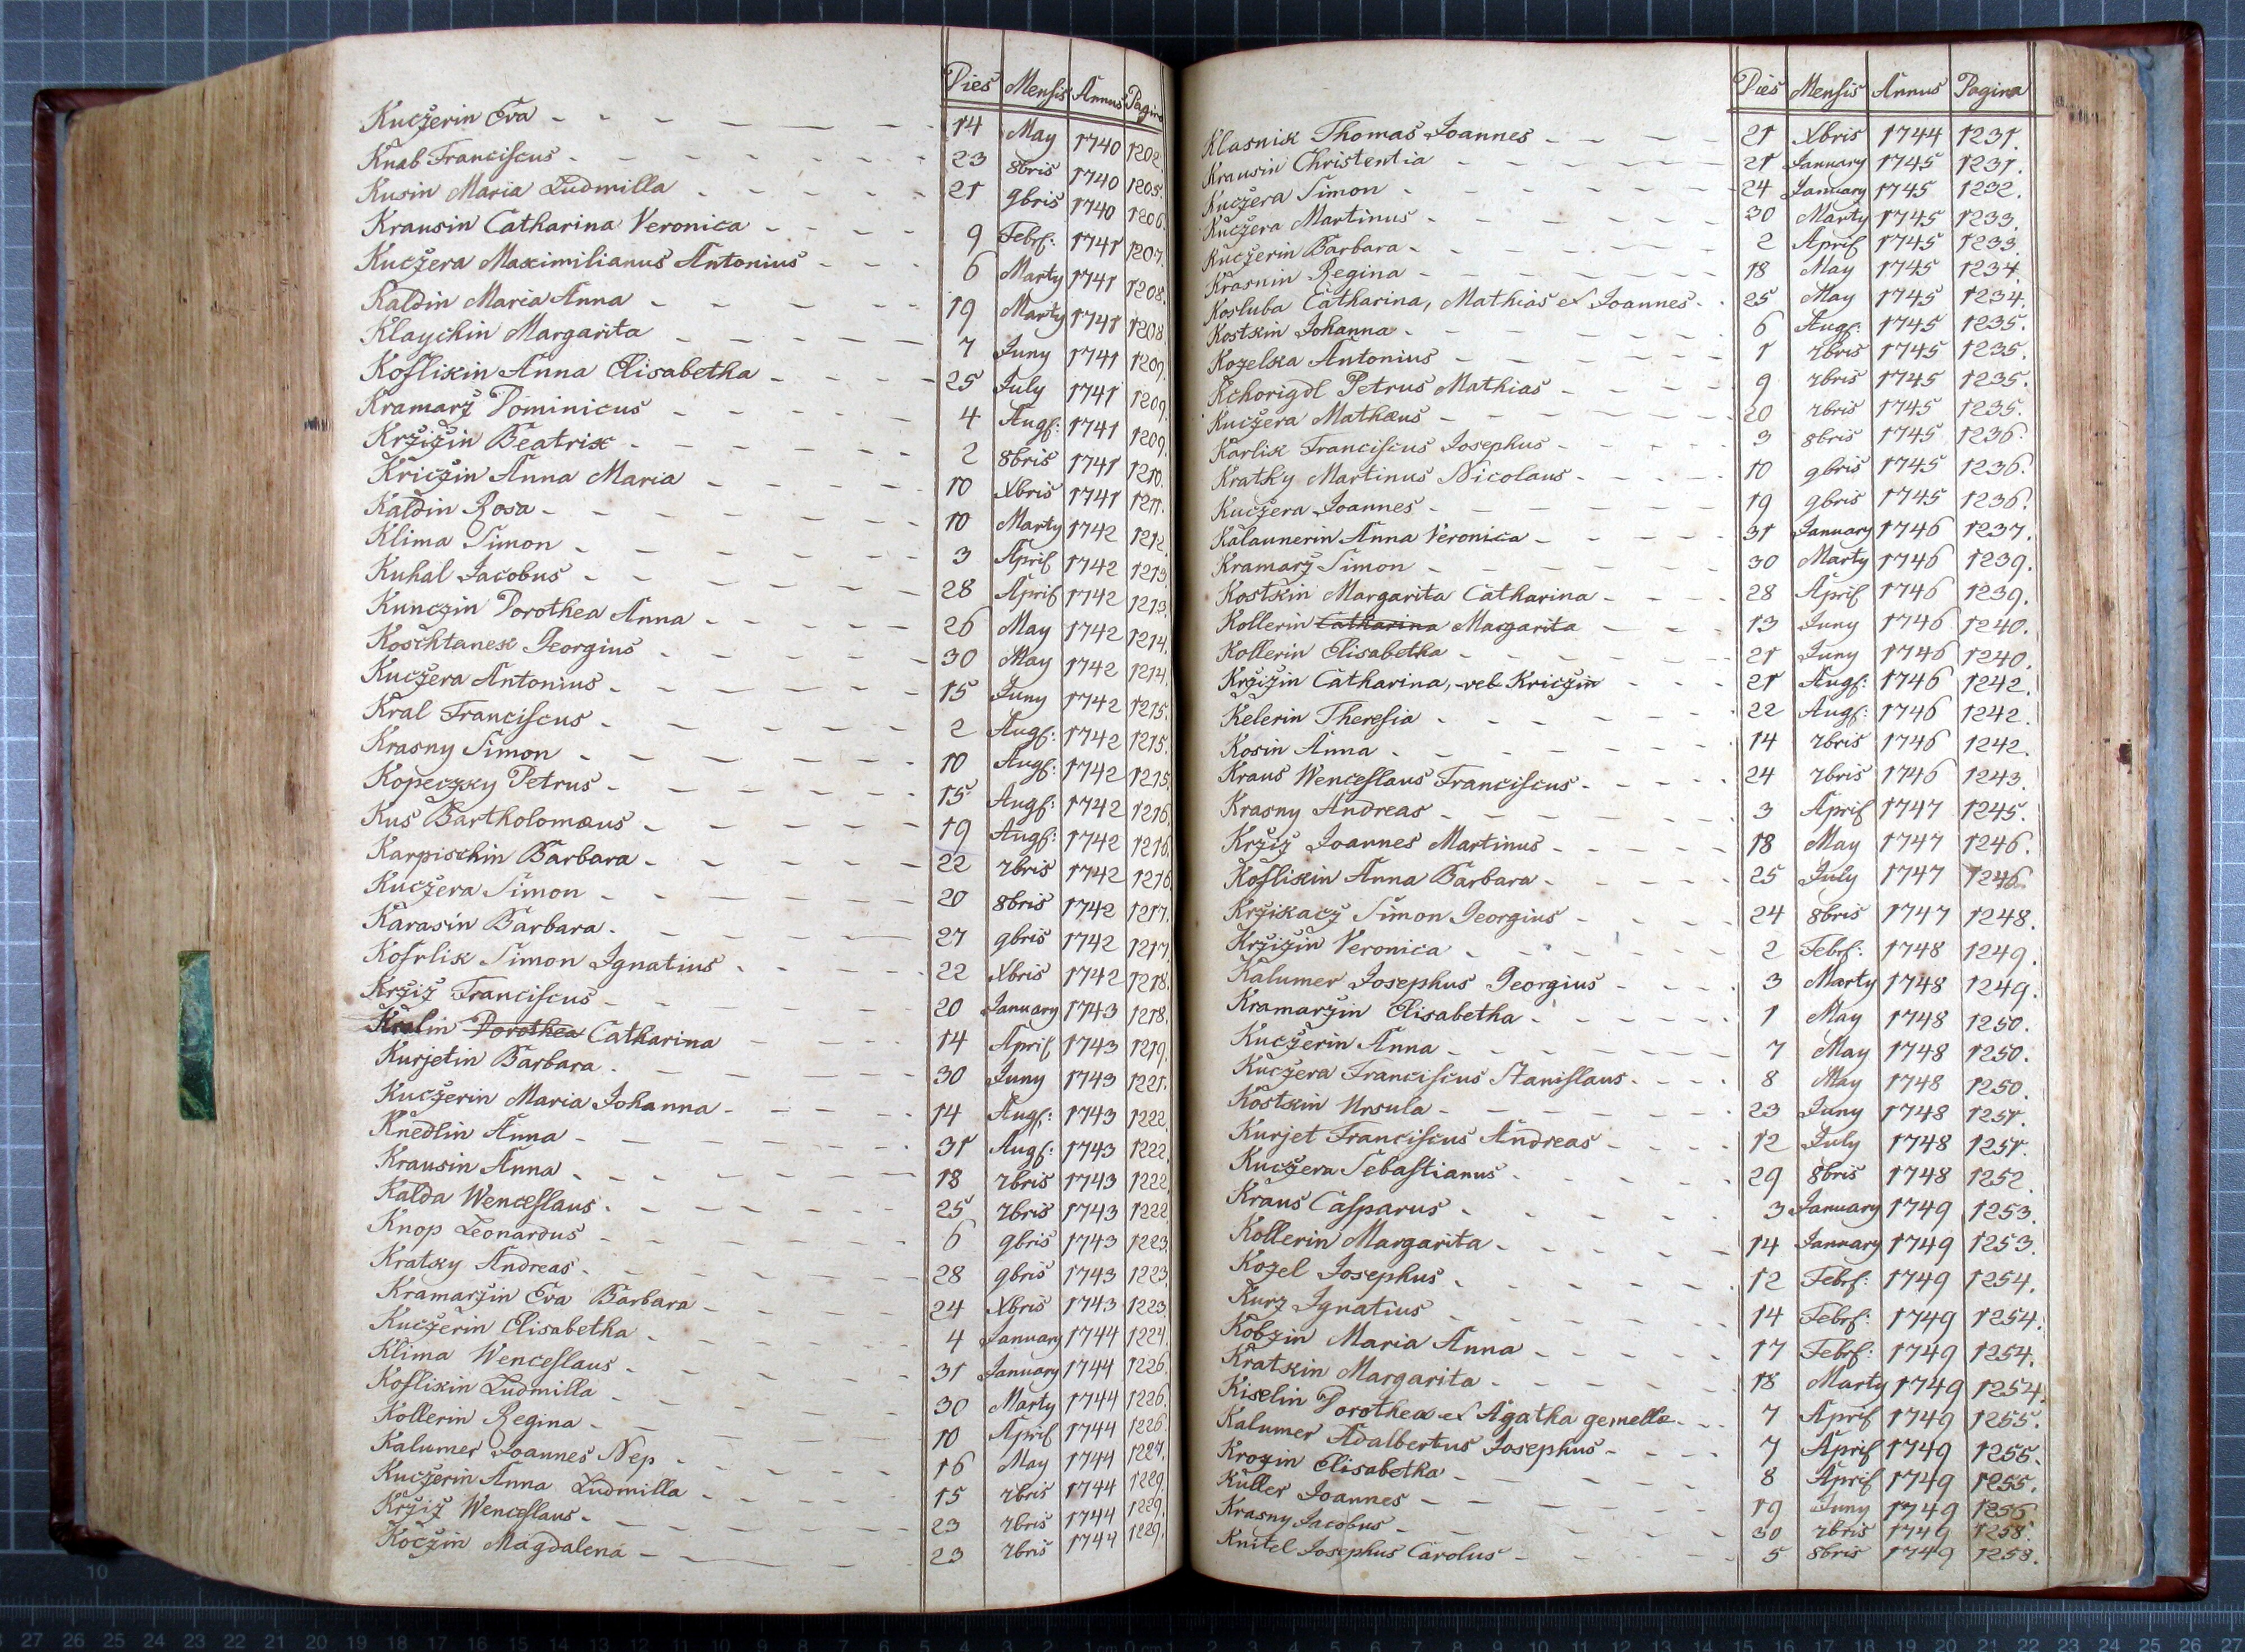 Dies Mensis Annus Pagina
Kuczerin Eva 14 May 1740 1202.
Knab Franciscus 23 8bris 1740 1205.
Kusin Maria Ludmilla 21 9bris 1740 1206.
Krausin Catharina Veronica 9 Febr: 1741 1207.
Kuczera Maximilianus Antonius 6 Marty 1741 1208.
Kaldin Maria Anna 19 Marty 1741 1208.
Klaychin Margarita 7 Juny 1741 1209.
Koslikin Anna Elisabetha 25 July 1741 1209.
Kramarz Dominicus 4 Aug: 1741 1209.
Krzizin Beatrix 2 8bris 1741 1210.
Kriczin Anna Maria 10 Xbris 1741 1211.
Kaldin Rosa 10 Marty 1742 1212.
Klima Simon 3 April 1742 1213.
Kuhal Jacobus 28 April 1742 1213.
Kunczin Dorothea Anna 26 May 1742 1214.
Koschtanek Georgius 30 May 1742 1214.
Kuczera Antonius 15 Juny 1742 1215.
Kral Franciscus 2 Aug: 1742 1215.
Krasny Simon 10 Aug: 1742 1215.
Kopeczky Petrus 15 Aug: 1742 1216.
Kus Bartholomæus 19 Aug: 1742 1216.
Karpischin Barbara 22 7bris 1742 1216.
Kuczera Simon 20 8bris 1742 1217.
Karasin Barbara 27 9bris 1742 1217.
Kosrlik Simon Ignatius 22 Xbris 1742 1218.
Krziz Franciscus 20 January 1743 1218.
Kralin Dorothea Catharina 14 April 1743 1219.
Kurjetin Barbara 30 Juny 1743 1221.
Kuczerin Maria Johanna 14 Aug: 1743 1222.
Knedlin Anna 31 Aug: 1743 1222.
Krausin Anna 18 7bris 1743 1222.
Kalda Wenceslaus 25 7bris 1743 1222.
Knop Leonardus 6 9bris 1743 1223.
Kratky Andreas 28 9bris 1743 1223.
Kramarzin Eva Barbara 24 Xbris 1743 1223.
Kuczerin Elisabetha 4 January 1744 1224.
Klima Wenceslaus 31 January 1744 1226.
Koslikin Ludmilla 30 Marty 1744 1226.
Kollerin Regina 10 April 1744 1226.
Kalumer Joannes Nep 16 May 1744 1227.
Kuczerin Anna Ludmilla 15 7bris 1744 1229.
Krziz Wenceslaus 23 7bris 1744 1229.
Koczin Magdalena 23 7bris 1744 1229.
Dies Mensis Annus Pagina
Klasnik Thomas Joannes 21 Xbris 1744 1231.
Krausin Christentia 21 January 1745 1231.
Kuczera Simon 24 January 1745 1232.
Kuczera Martinus 30 Marty 1745 1233.
Kuczerin Barbara 2 April 1745 1233.
Krasnin Regina 18 May 1745 1234.
Kosluba Catharina, Mathias et Joannes 25 May 1745 1234.
Kostkin Johanna 6 Aug: 1745 1235.
Kozelka Antonius 1 7bris 1745 1235.
Kchorigdl Petrus Mathias 9 7bris 1745 1235.
Kuczera Mathæus 20 7bris 1745 1235.
Karlik Franciscus Josephus 3 8bris 1745 1236.
Kratky Martinus Nicolaus 10 9bris 1745 1236.
Kuczera Joannes 19 9bris 1745 1236.
Kalaunerin Anna Veronica 31 January 1746 1237.
Kramarz Simon 30 Marty 1746 1239.
Kostkin Margarita Catharina 28 April 1746 1239.
Kollerin Catharina Margarita 13 Juny 1746 1240.
Kollerin Elisabetha 21 Juny 1746 1240.
Krzizin Catharina, vel Kriczin 21 Aug: 1746 1242.
Kelerin Theresia 22 Aug: 1746 1242.
Kosin Anna 14 7bris 1746 1242.
Kraus Wenceslaus Franciscus 24 7bris 1746 1243.
Krasny Andreas 3 April 1747 1245.
Krziz Joannes Martinus 18 May 1747 1246.
Koslikin Anna Barbara 25 July 1747 1246
Krzikacz Simon Georgius 24 8bris 1747 1248.
Krzizin Veronica 2 Febr: 1748 1249.
Kalumer Josephus Georgius 3 Marty 1748 1249.
Kramarzin Elisabetha 1 May 1748 1250.
Kuczerin Anna 7 May 1748 1250.
Kuczera Franciscus Stanislaus 8 May 1748 1250.
Kostkin Ursula 23 Juny 1748 1251.
Kurjet Franciscus Andreas 12 July 1748 1251.
Kuczera Sebastianus 29 8bris 1748 1252.
Kraus Casparus 3 January 1749 1253.
Kollerin Margarita 14 January 1749 1253.
Kozel Josephus 12 Febr: 1749 1254.
Kurz Ignatius 14 Febr: 1749 1254.
Kobzin Maria Anna 17 Febr: 1749 1254.
Kratkin Margarita 18 Marty 1749 1254.
Kiselin Dorothea et Agatha gemellæ 7 April 1749 1255.
Kalumer Adalbertus Josephus 7 April 1749 1255.
Krozin Elisabetha 8 April 1749 1255.
Kuller Joannes 19 Juny 1749 1256
Krasny Jacobus 30 7bris 1749 1258.
Knitel Josephus Carolus 5 8bris 1749 1258.